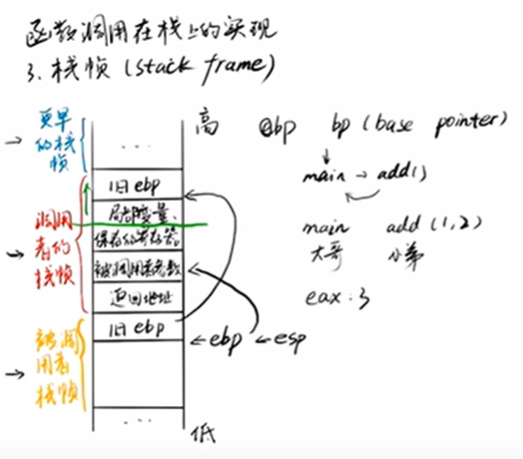 函数调用在栈上的实现
3. 栈帧 (stack frame)
更早的栈帧
高
ebp bp (base pointer)
...
旧 ebp
main → add()
调用者的栈帧
局部变量
保存的寄存器
main add (1,2)
被调用者参数
大哥 小弟
返回地址
eax : 3
旧 ebp
← ebp ← esp
被调用者栈帧
...
低